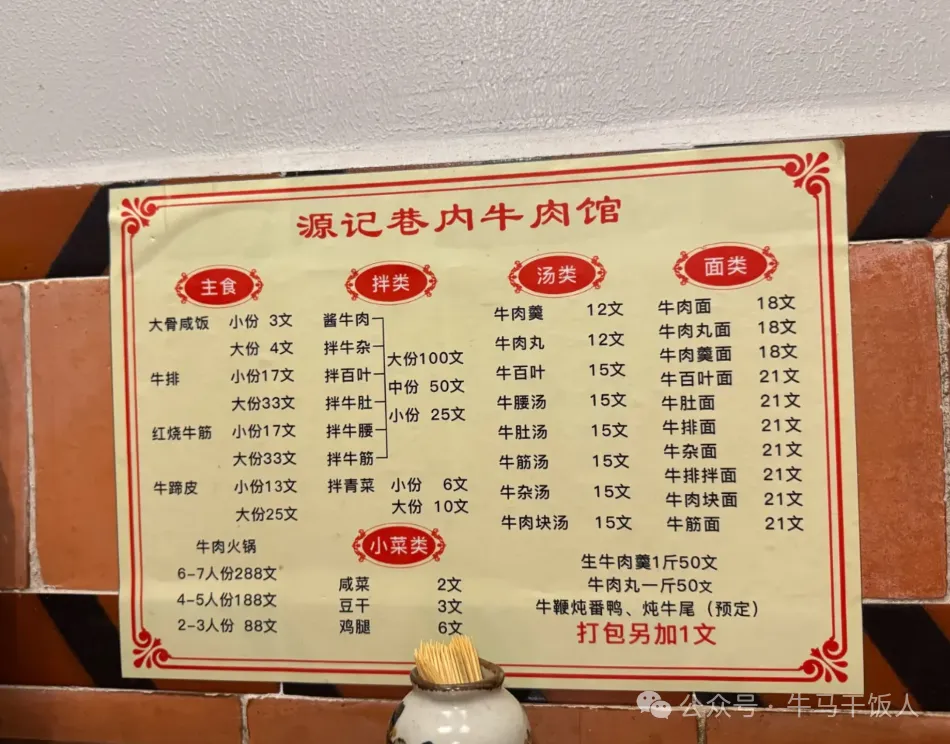 源记巷内牛肉馆
主食
大骨咸饭 小份 3文
大份 4文
牛排 小份17文
大份33文
红烧牛筋 小份17文
大份33文
牛蹄皮 小份13文
大份25文
牛肉火锅
6-7人份288文
4-5人份188文
2-3人份 88文
拌类
酱牛肉
拌牛杂
拌百叶
拌牛肚
拌牛腰
拌牛筋
大份100文
中份 50文
小份 25文
拌青菜 小份 6文
大份 10文
小菜类
咸菜 2文
豆干 3文
鸡腿 6文
汤类
牛肉羹 12文
牛肉丸 12文
牛百叶 15文
牛腰汤 15文
牛肚汤 15文
牛筋汤 15文
牛杂汤 15文
牛肉块汤 15文
面类
牛肉面 18文
牛肉丸面 18文
牛肉羹面 18文
牛百叶面 21文
牛肚面 21文
牛排面 21文
牛杂面 21文
牛排拌面 21文
牛肉块面 21文
牛筋面 21文
生牛肉羹1斤50文
牛肉丸一斤50文
牛鞭炖番鸭、炖牛尾（预定）
打包另加1文
公众号·牛马干饭人